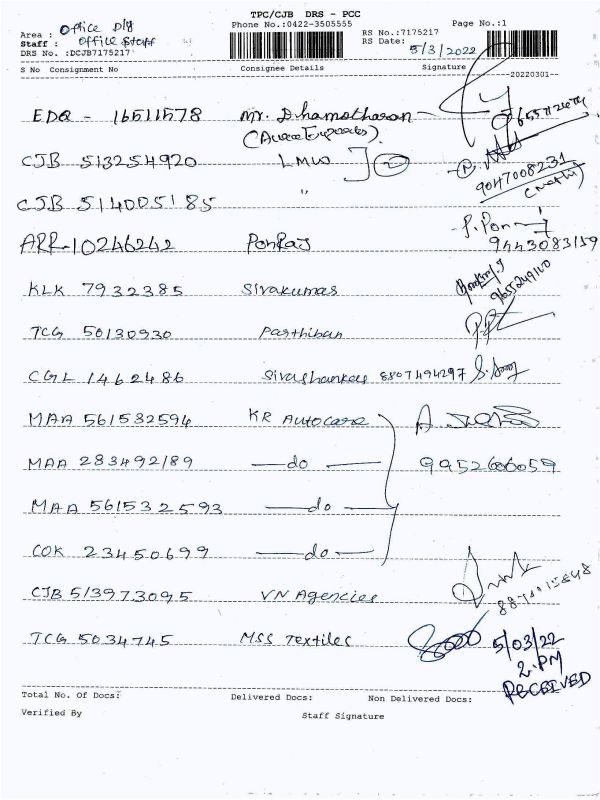 TPC/CJB DRS - PCC
Phone No.:0422-3505555
Page No.:1
Area : Office Dly
Staff : Office Staff
DRS No. :DCJB7175217
RS No.:7175217
RS Date: 5/3/2022
S No Consignment No Consignee Details Signature
20220301
EDQ - 16511578 Mr. Dhamotharan
CJB 513254920 LMW 2
9047008231
CJB 514005185 "
P. Pon
ARR-10246242 PonRaj 9443083159
KLK 7932385 Sivakumar 9655249110
TCG 50130930 Parthiban
CGL 1462486 Sivashankar 8807494297
MAA 561532594 KR Autocare
MAA 283492189 — do — 9952606059
MAA 561532593 — do —
COK 23450699 — do —
CJB 513973095 VN Agencies
TCG 5034745 MSS Textiles 5/03/22
2. PM
RECEIVED
Total No. Of Docs: Delivered Docs: Non Delivered Docs:
Verified By Staff Signature